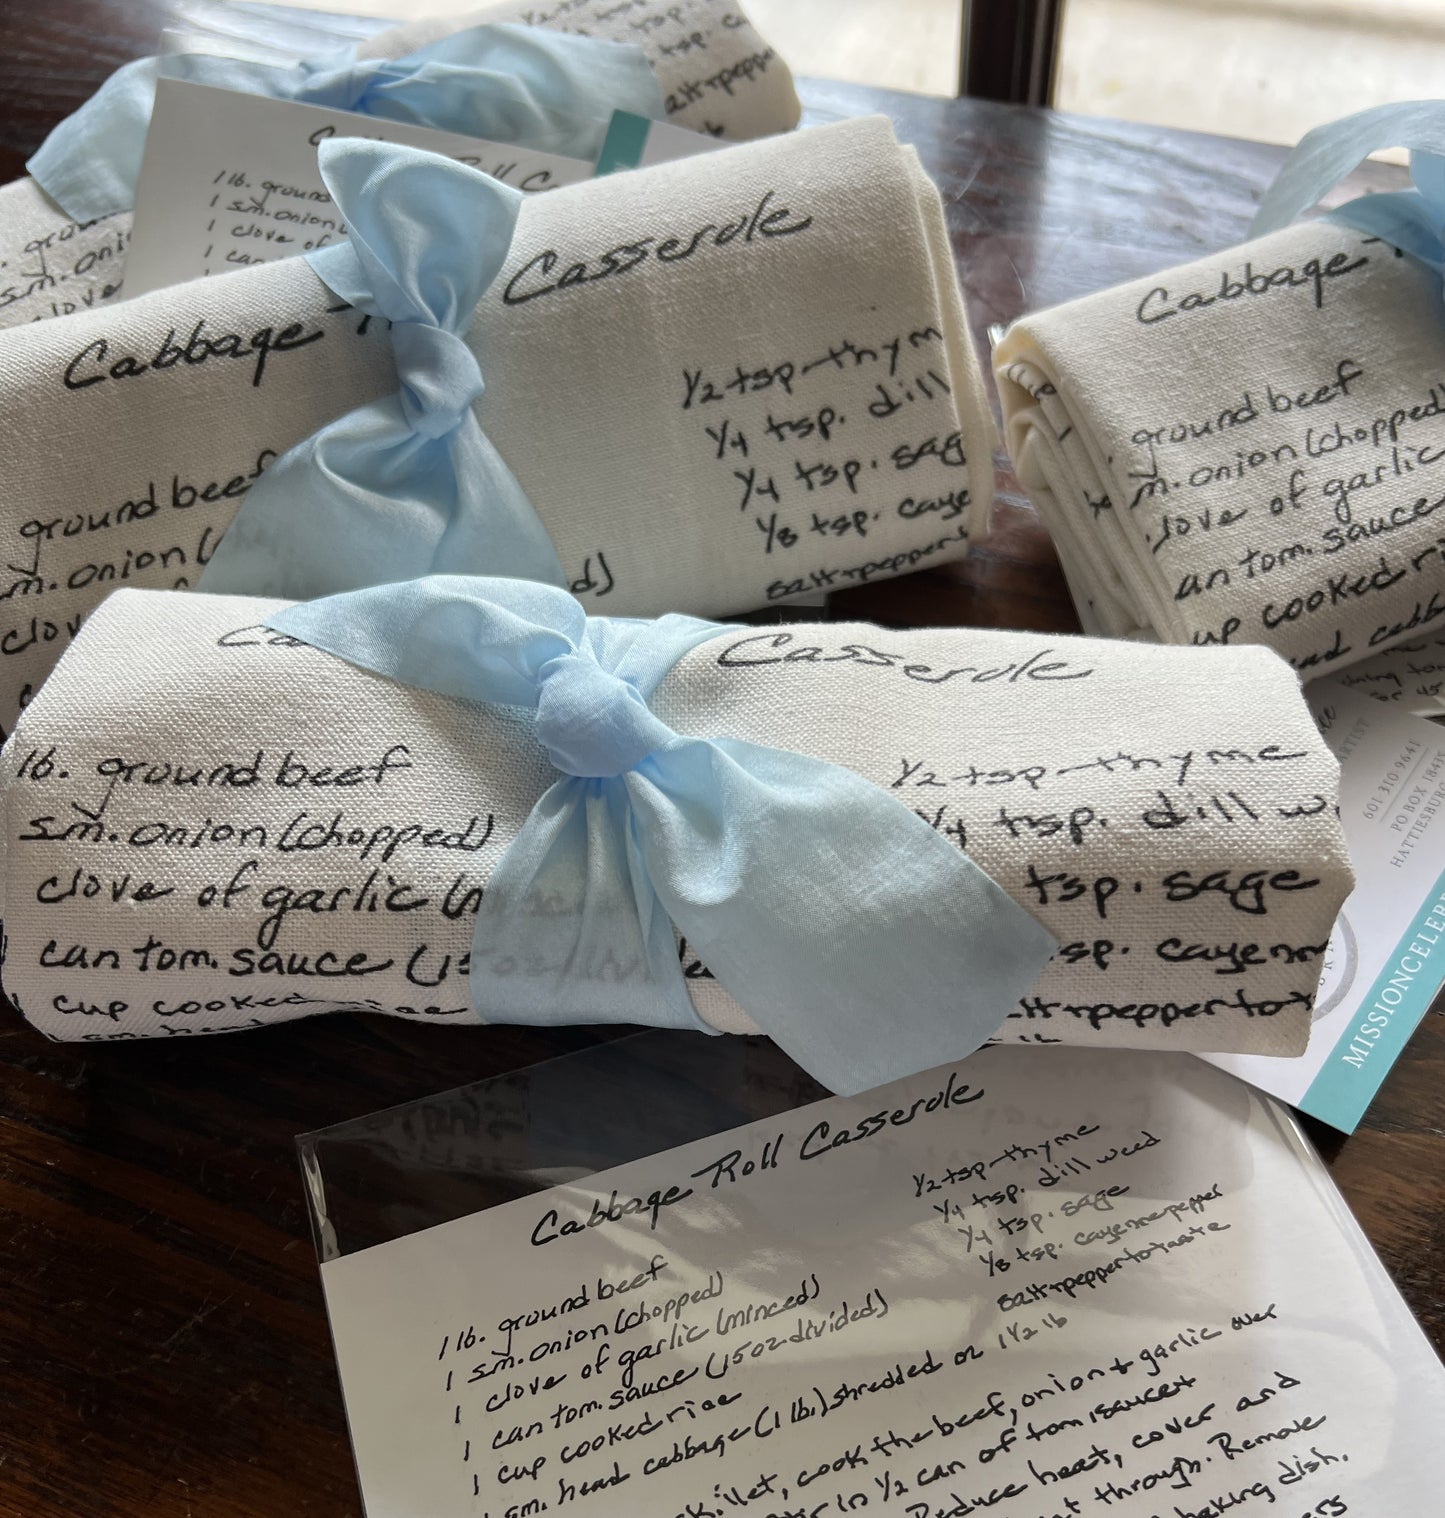 tsp. c
salt + peppe
lb
Roll C
1 lb. ground
1 sm. onion
1 clove of
1 can
. grou
sm. oni
clove
Cabbage Casserole
1/2 tsp thym
1/4 tsp. dill
1/4 tsp. sag
1/8 tsp. caye
salt + pepper
ground beef
m. onion (
clov
d)
Cabbage
ground beef
m. onion (chopped)
love of garlic
an tom. sauce
up cooked ri
ead cabb
Ca Casserole
lb. ground beef
sm. onion (chopped)
clove of garlic (
can tom. sauce (15
cup cooked rice
sm. head
1/2 tsp thyme
1/4 tsp. dill w
tsp. sage
sp. cayenn
lt + pepper to t
lb
RTIST
601 310 9641
PO BOX 1841
HATTIESBUR
MISSIONCELEB
Cabbage Roll Casserole
1/2 tsp thyme
1/4 tsp. dill weed
1/4 tsp. sage
1/8 tsp. cayenne pepper
salt + pepper to taste
1 lb. ground beef
1 sm. onion (chopped)
1 clove of garlic (minced)
1 can tom. sauce (15 oz divided)
1 cup cooked rice
1 sm. head cabbage (1 lb.) shredded or 1 1/2 lb
killet, cook the beef, onion + garlic over
in 1/2 can of tom. sauce +
Reduce heat, cover and
t through. Remove
baking dish.
ers